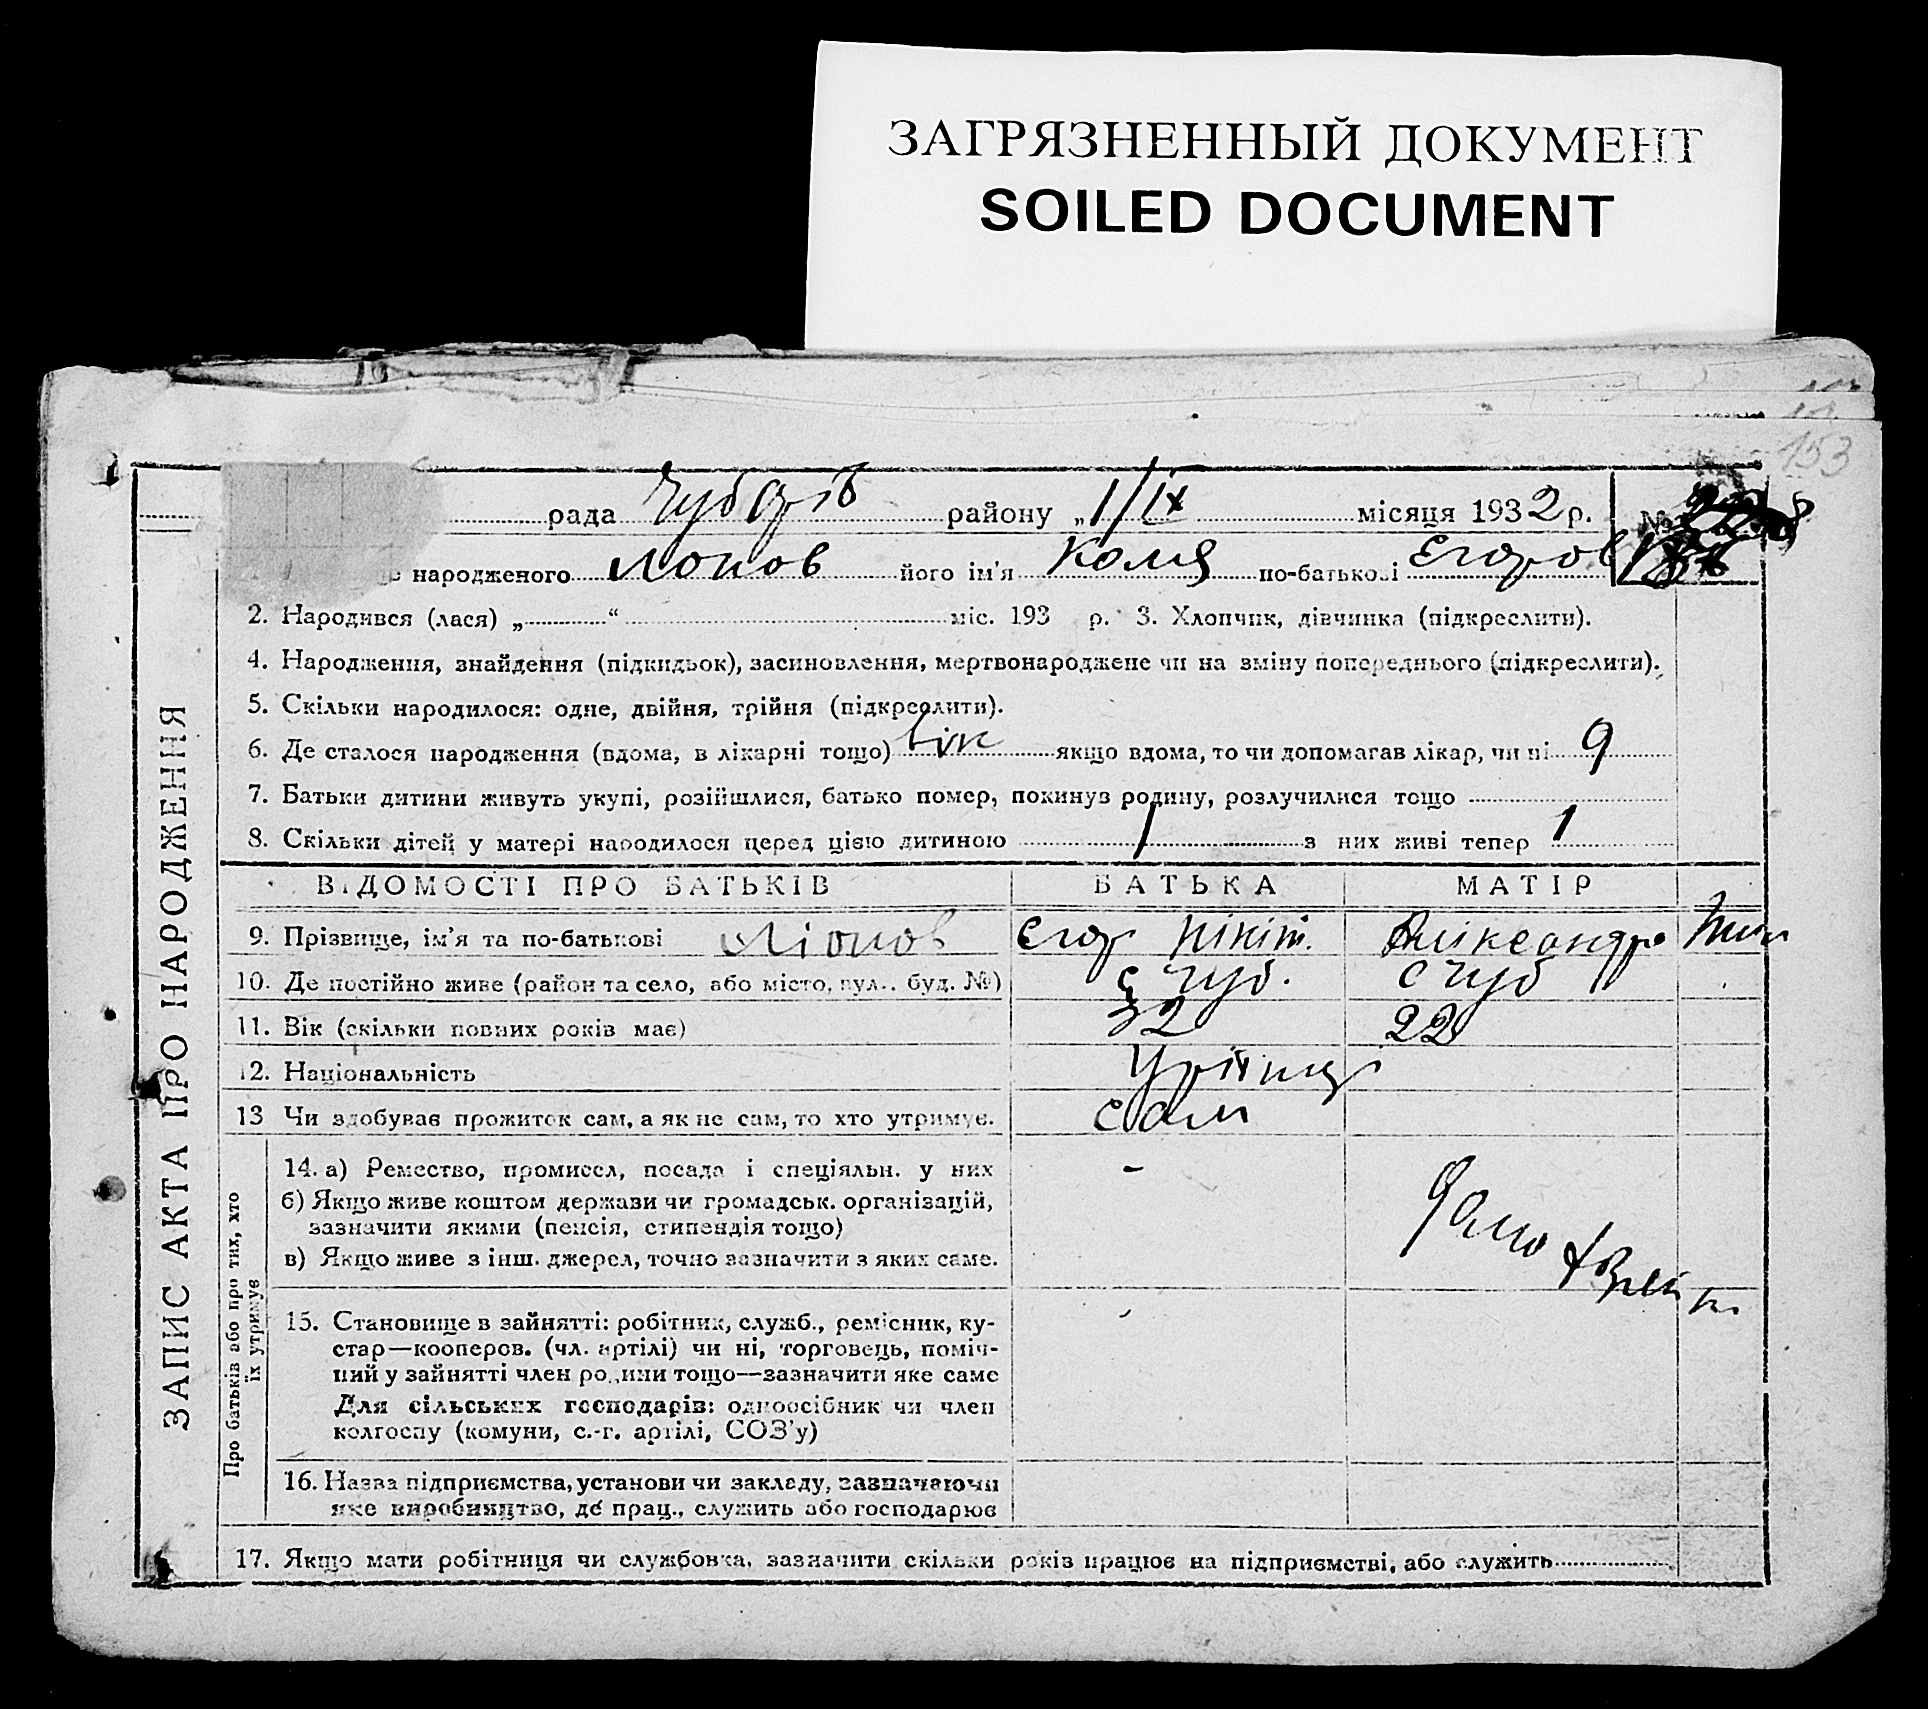 ЗАГРЯЗНЕННЫЙ ДОКУМЕНТ
SOILED DOCUMENT
153
рада району „ 1/IX місяця 1932 р. №
народженого його ім'я Коля по-батькові Єгоров
2. Народився (лася) „ “ міс. 193 р. 3. Хлопчик, дівчинка (підкреслити).
4. Народження, знайдення (підкидьок), засиновлення, мертвонароджене чи на зміну попереднього (підкреслити).
5. Скільки народилося: одне, двійня, трійня (підкреслити).
6. Де сталося народження (вдома, в лікарні тощо) якщо вдома, то чи допомагав лікар, чи ні 9
7. Батьки дитини живуть укупі, розійшлися, батько помер, покинув родину, розлучилися тощо
8. Скільки дітей у матері народилося перед цією дитиною 1 з них живі тепер 1
ВІДОМОСТІ ПРО БАТЬКІВ БАТЬКА МАТІР
9. Прізвище, ім'я та по-батькові Єгор Нікіт. Аліксандра
10. Де постійно живе (район та село, або місто, вул., буд. №) с Чуб. с Чуб
11. Вік (скільки повних років має) 32 22
12. Національність
13 Чи здобуває прожиток сам, а як не сам, то хто утримує. сам
14. а) Ремество, промисел, посада і спеціяльн. у них -
б) Якщо живе коштом держави чи громадськ. організацій,
зазначити якими (пенсія, стипендія тощо)
в) Якщо живе з інш. джерел, точно зазначити з яких саме.
15. Становище в зайнятті: робітник, служб., ремісник, ку-
стар—кооперов. (чл. артілі) чи ні, торговець, поміч-
ний у зайнятті член родини тощо—зазначити яке саме
Для сільських господарів: одноосібник чи член
колгоспу (комуни, с.-г. артілі, СОЗ'у)
16. Назва підприємства, установи чи закладу, зазначаючи
яке виробництво, де прац., служить або господарює
17. Якщо мати робітниця чи службовка, зазначити скільки років працює на підприємстві, або служить
ЗАПИС АКТА ПРО НАРОДЖЕННЯ
Про батьків або про тих, хто
їх утримує